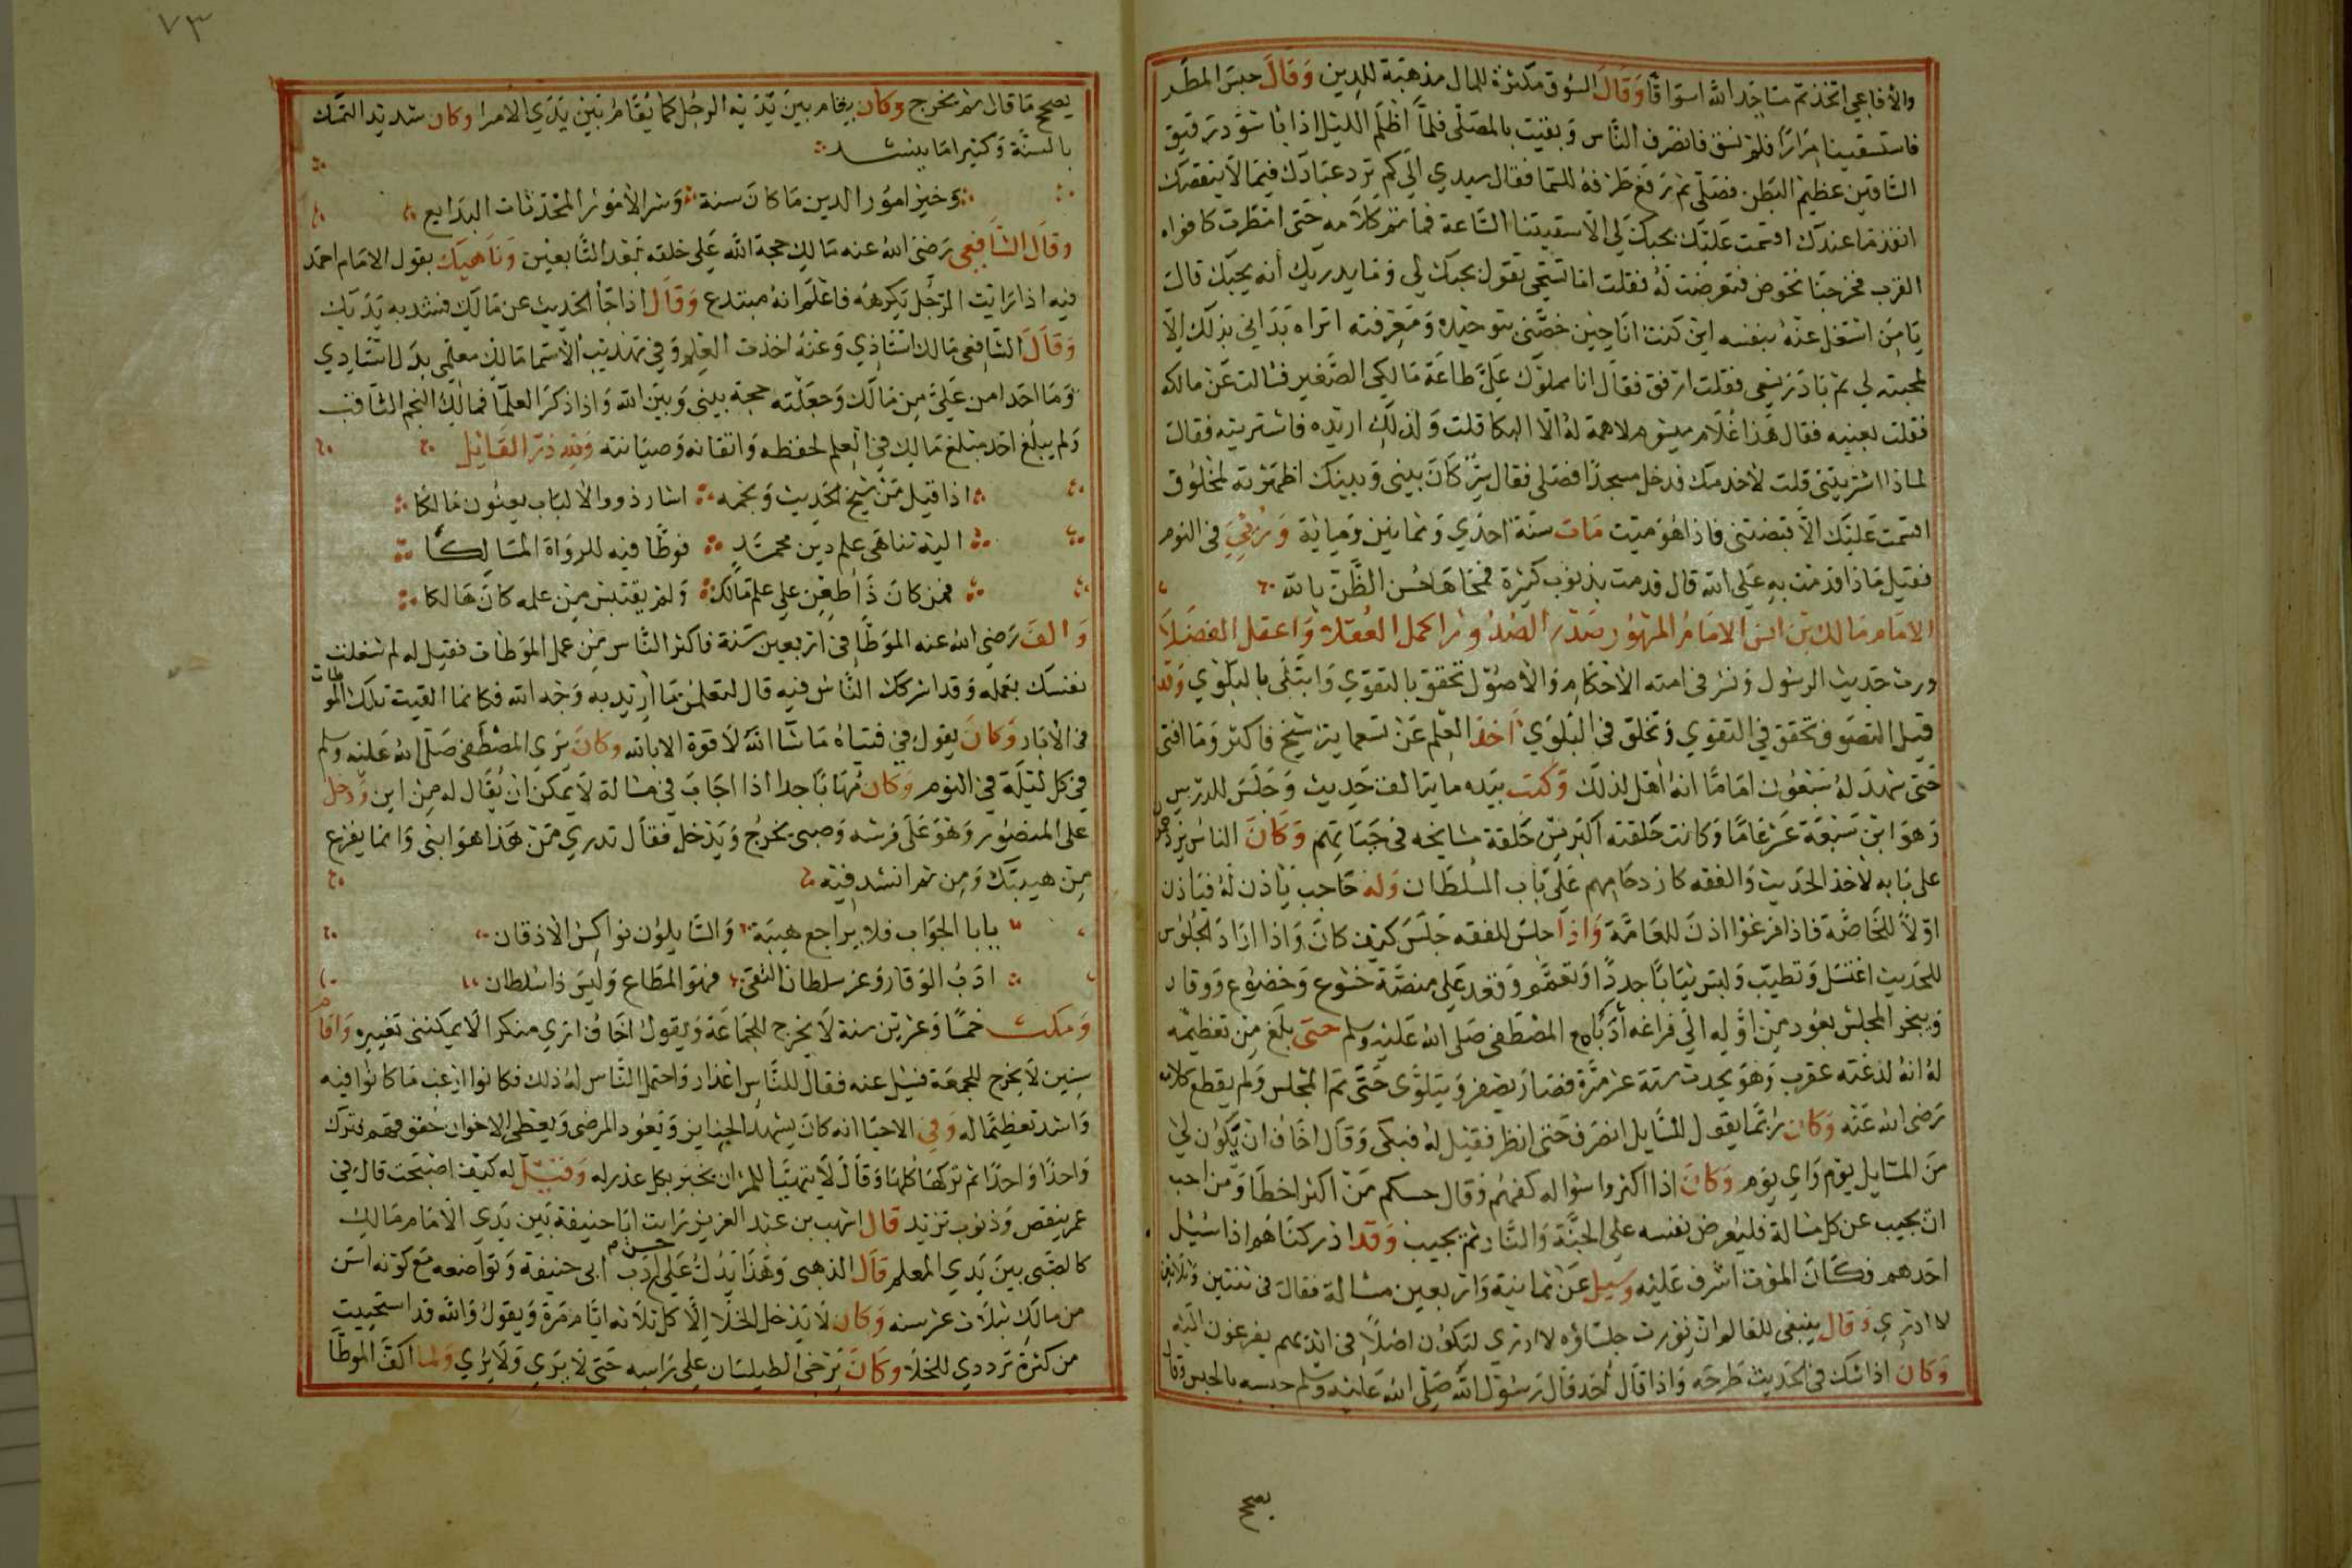 والأفاعي اتخذتم مساجد الله اسواقا وقال السوق مكثرة للمال مذهبة للدين وقال حبس المطر
فاستسقينا مرارا فلم نسق فانصرف الناس وبقيت بالمصلى فلما أظلم الليل اذا باسود دقيق
الساقين عظيم البطن فصلى ثم رفع طرفه للسما فقال سيدي الى كم ترد عبادك فيما لا ينقصك
انفد ما عندك اقسمت عليك بحبك لي الا سقيتنا الساعة فما تم كلامه حتى امطرت كافواه
القرب فخرجنا نخوض فتعرضت له فقلت اما تستحي تقول بحبك لي وما يدريك أنه يحبك قال
يا من اشتغل عنه بنفسه اين كنت انا حين خصني بتوحيده ومعرفته اتراه بدأني بذلك الا
لمحبته لي ثم بادر يسعى فقلت ارفق فقال انا مملوك علي طاعة مالكي الصغير فسالت عن مالكه
فقلت بعنيه فقال هذا غلام ميشوم لا همة له الا البكا قلت ولذلك اريده فاشتريته فقال
لماذا اشتريتني قلت لأخدمك فدخل مسجدا فصلى فقال سر كان بيني وبينك اظهرته لمخلوق
اقسمت عليك الا قبضتني فاذا هو ميت مات سنة احدى وثمانين ومياية ورئي في النوم
فقيل ماذا قدمت به على الله قال قدمت بذنوب كثيرة فمحاها حسن الظن بالله
الامام مالك بن انس الامام المشهور صدر الصدور اكمل العقلا واعقل الفضلا
ورث حديث الرسول ونشر في امته الأحكام والأصول تحقق بالتقوي وابتلى بالبلوي وقد
قيل التصوف تحقق في التقوي وتخلق في البلوي أخذ العلم عن تسعماية شيخ فاكثر وما افتى
حتى شهد له سبعون اماما انه أهل لذلك وكتب بيده ماية الف حديث وجلس للدرس
وهو ابن سبعة عشر عاما وكانت حلقته اكبر من حلقة مشايخه في حياتهم وكان الناس يزدحمون
على بابه لأخذ الحديث والفقه كازدحامهم على باب السلطان وله حاجب يأذن له فياذن
اولا للخاصة فاذا فرغوا اذن للعامة واذا جلس للفقه جلس كيف كان واذا اراد الجلوس
للحديث اغتسل وتطيب ولبس ثيابا جددا وتعمم وقعد على منصة خشوع وخضوع ووقار
ويبخر المجلس بعود من اوله الى فراغه أدبا مع المصطفى صلى الله عليه وسلم حتى بلغ من تعظيمه
له انه لدغته عقرب وهو يحدث ستة عشر مرة فصار يصفر ويتلوى حتى تم المجلس ولم يقطع كلامه
رضي الله عنه وكان ربما يقول للسايل انصرف حتى انظر فقيل له فبكى وقال اخاف ان يكون لي
من المسايل يوم واي يوم وكان اذا اكثروا سواله كفهم وقال حسبكم من اكثر اخطا ومن احب
ان يجيب عن كل مسالة فليعرض نفسه على الجنة والنار ثم يجيب وقد ادركناهم اذا سئيل
احدهم فكان الموت اشرف عليه وسيل عن ثمانية واربعين مسالة فقال في ثنتين وثلاثين
لا ادري وقال ينبغي للعالم ان يورث جلساؤه لا ادري لتكون اصلا في ايديهم يفزعون اليه
وكان اذا شك في الحديث طرحه واذا قال احد قال رسول الله صلى الله عليه وسلم حبسه بالحبس وقال
يصح
٧٣
يصح ما قال ثم يخرج وكان يقام بين يديه الرجل كما يقام بين يدي الامرا وكان شديد التمسك
بالسنة وكثيرا ما ينشد
وخير امور الدين ما كان سنة وشر الأمور المحدثات البدايع
وقال الشافعي رضي الله عنه مالك حجة الله على خلقه بعد التابعين وناهيك بقول الامام احمد
فيه اذا رايت الرجل يكرهه فاعلم انه مبتدع وقال اذا جا الحديث عن مالك فشد به يديك
وقال الشافعي مالك استاذي وعنه اخذت العلم وفي تهذيب الأسما مالك معلمي بدل استادي
وما احد امن علي من مالك وجعلته حجة بيني وبين الله واذا ذكر العلما فمالك النجم الثاقب
ولم يبلغ احد مبلغ مالك في العلم لحفظه واتقانه وصيانته ولله در القايل
اذا قيل من شيخ الحديث ونجمه اشار ذوو الألباب يعنون مالكا
اليه تناهى علم دين محمد فوطا فيه للرواة المسالكا
فمن كان ذا طعن على علم مالك ولم يقتبس من علمه كان هالكا
والف رضي الله عنه الموطا في اربعين سنة فاكثر الناس من عمل الموطات فقيل له لم شغلت
نفسك بعمله وقد اشركك الناس فيه قال لتعلمن ما اريد به وجه الله فكانما القيت تلك الموطات
في الأبار وكان يقول في فتياه ما شا الله لا قوة الا بالله وكان يرى المصطفى صلى الله عليه وسلم
في كل ليلة في النوم وكان مهابا جدا اذا اجاب في مسالة لا يمكن ان يقال له من اين ودخل
على المنصور وهو على فرشه وصبي يخرج ويدخل فقال تدري من هذا هو ابني وانما يفزع
من هيبتك ومن ثم انشد فيه
يابا الجواب فلا يراجع هيبة والسايلون نواكس الأذقان
ادب الوقار وعز سلطان التقى فهو المطاع وليس ذا سلطان
ومكث خمسا وعشرين سنة لا يخرج للجماعة ويقول اخاف ارى منكرا لا يمكنني تغييره واقام
سنين لا يخرج للجمعة فسيل عنه فقال للناس اعذار واحتمل الناس له ذلك فكانوا ارغب ما كانوا فيه
واشد تعظيما له وفي الاحيا انه كان يشهد الجنايز ويعود المرضى ويعطى الاخوان حقوقهم فترك
واحدا واحدا ثم تركها كلها وقال لا يتهيا للمرء ان يخبر بكل عذر له وقيل له كيف اصبحت قال في
عمر ينقص وذنوب تزيد قال اشهب بن عبد العزيز رايت ابا حنيفة بين يدي الامام مالك
كالصبي بين يدي المعلم قال الذهبي وهذا يدل على حسن أدب ابي حنيفة وتواضعه مع كونه اسن
من مالك بثلاث عشر سنه وكان لا يدخل الخلا إلا كل ثلاثه ايام مرة ويقول والله قد استحييت
من كثرة ترددي للخلا وكان يرخى الطيلسان على راسه حتى لا يرى ولا يرى ولما الف الموطأ